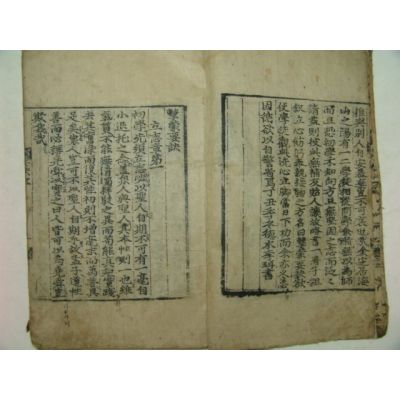 推與別人自安暴棄豈不可哀也哉余定居海
山之陽有一二學徒相從問學余慚無以爲師
而且恐初學不知向方且無堅固之志而泛泛
請益則彼此無補反貽人譏故略書一冊子粗
敍立心飭躬奉親接物之方名曰擊蒙要訣欲
使學徒觀此洗心立脚當日下功而余亦久患
因循欲以自警省焉丁丑季冬德水李珥書
擊蒙要訣
立志章第一
初學先須立志必以聖人自期不可有一毫自
小退託之念蓋衆人與聖人其本性則一也雖
氣質不能無淸濁粹駁之異而苟能眞知實踐
去其舊染而復其性初則不增毫末而萬善具
足矣衆人豈可不以聖人自期乎故孟子道性
善而必稱堯舜以實之曰人皆可以爲堯舜豈
欺我哉